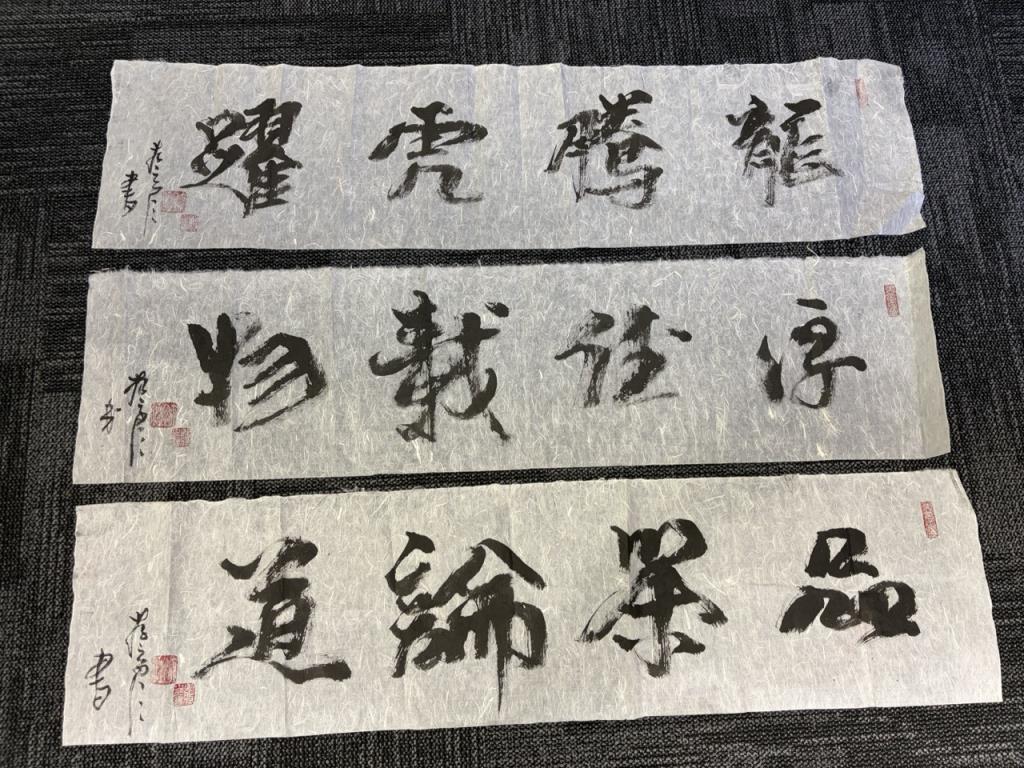 龍騰虎躍
書
厚德載物
書
品茶論道
書